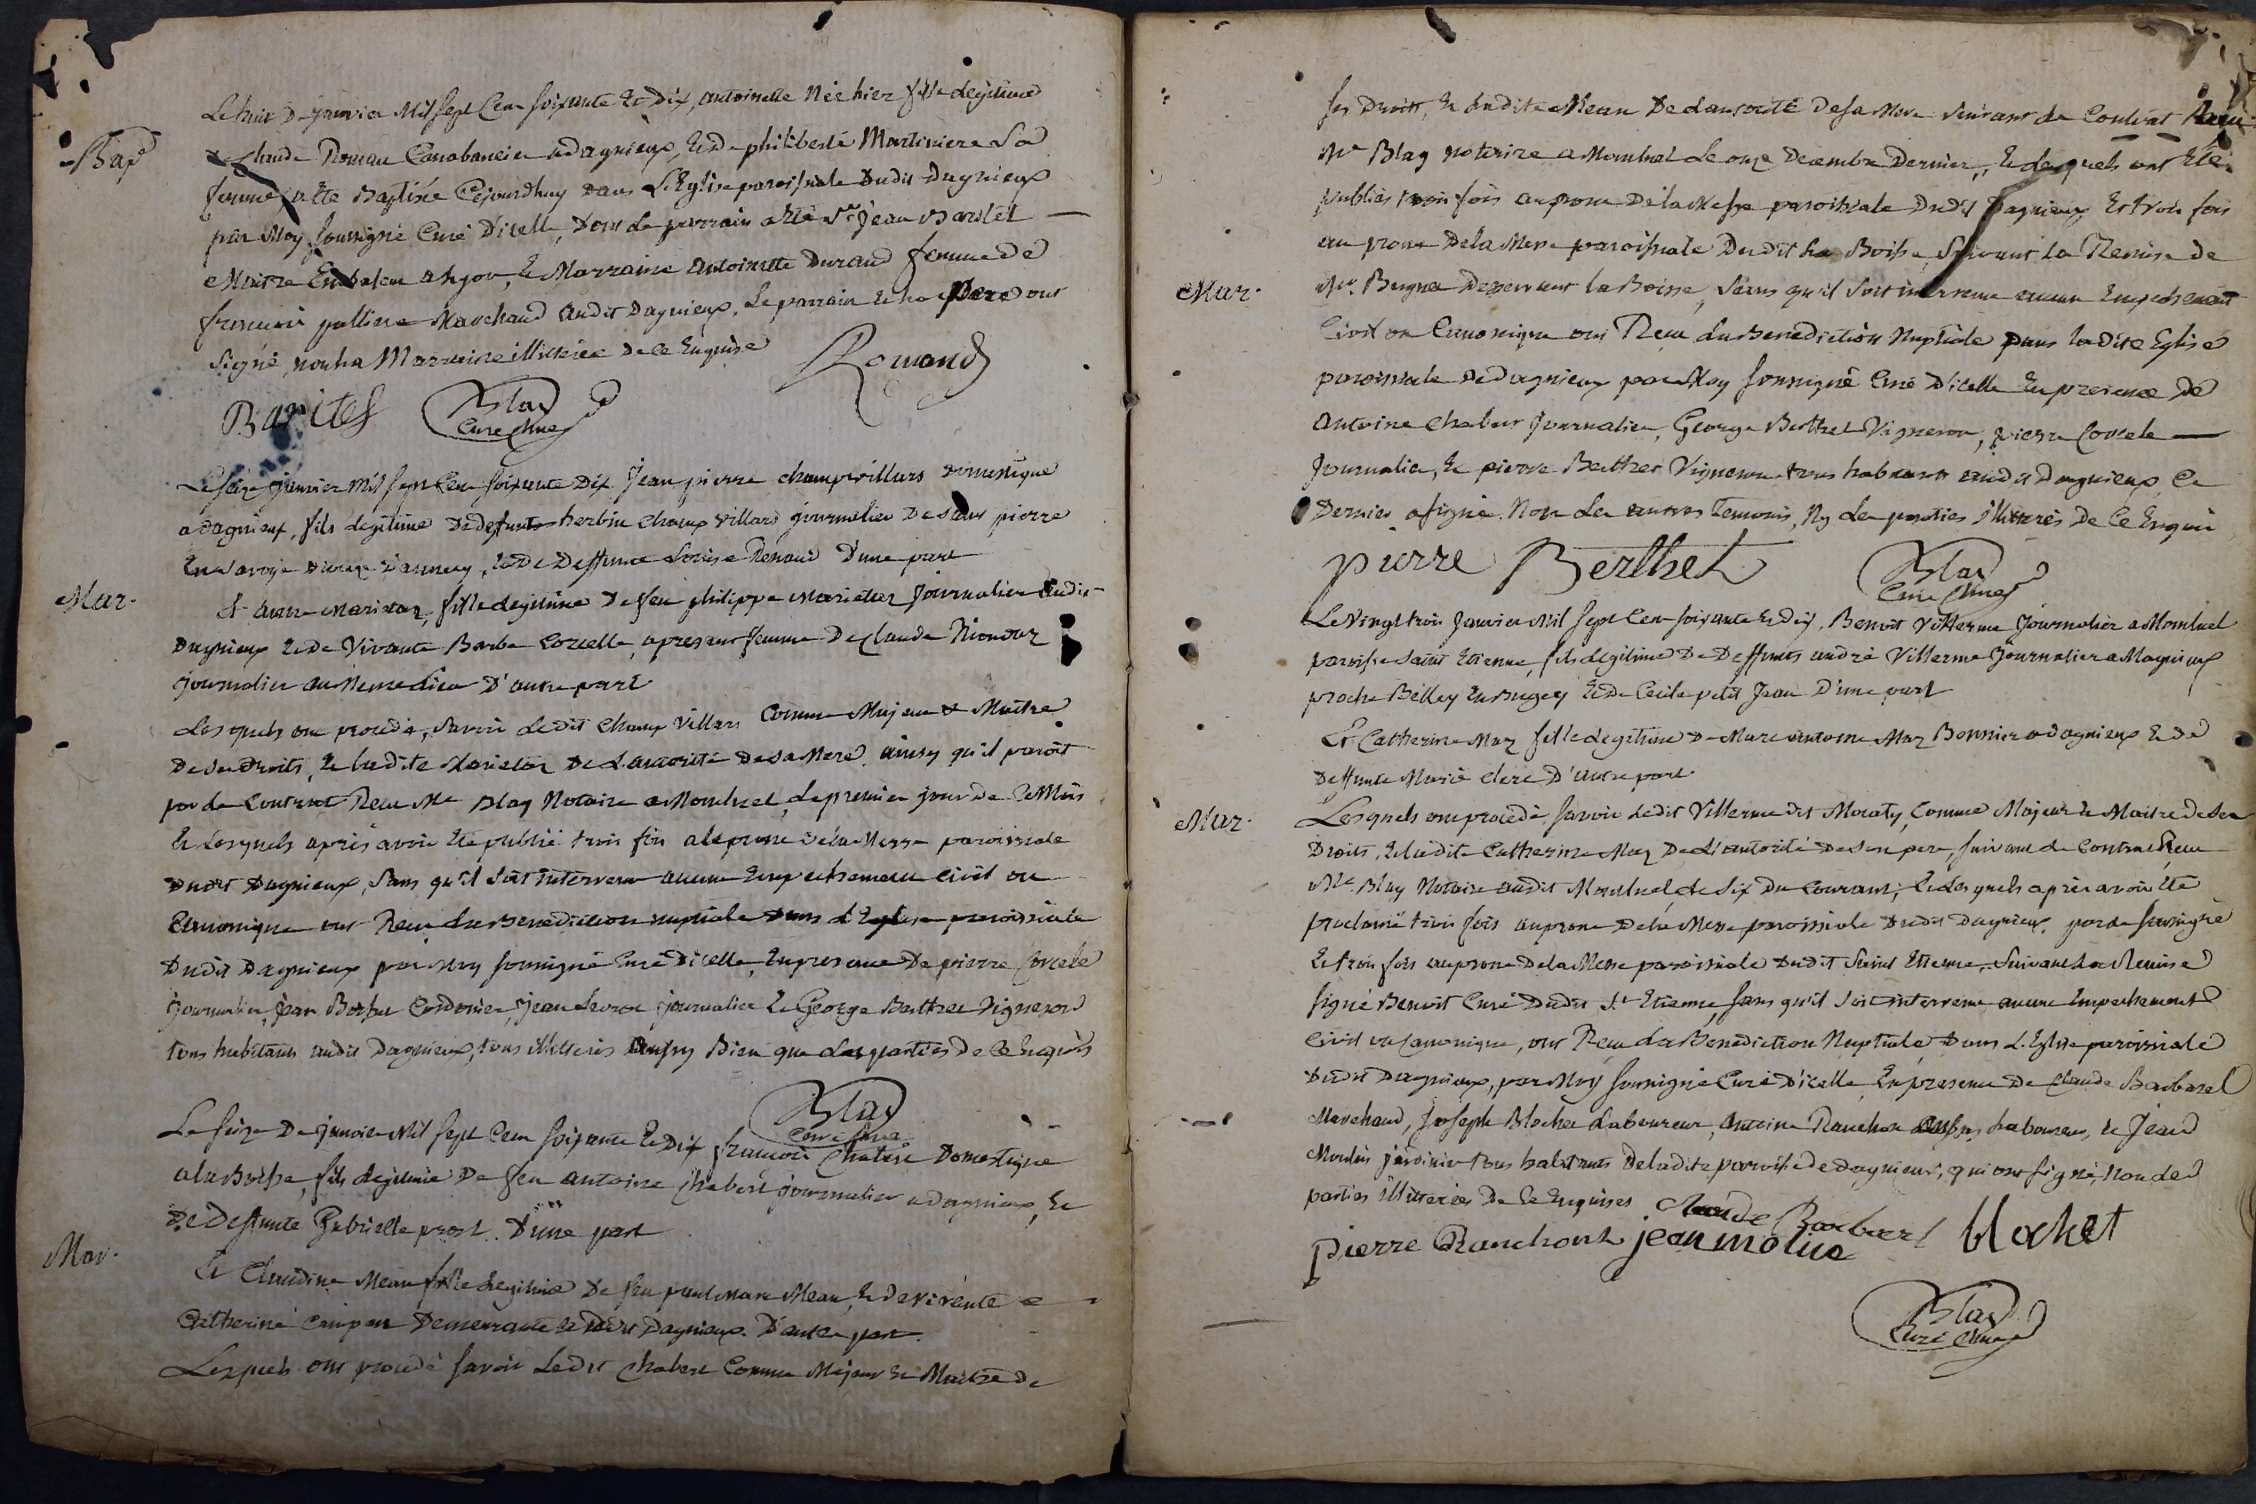 Le huit De janvier Mil sept Cent soixante Et Dix, antoinette Née hier fille Legitime
de Claude Romand Cabaretier a dagnieux, & De philiberte Martiniere Sa
Bap
femme a été Baptisée Cejourdhuy dans L'Eglise paroissiale Dudit Dagnieux
par Moy soussigné Curé D'icelle, Dont Le parrain a été Sr Jean Baritel
Maitre a Lyon, & Marraine antoinette Durand femme de
francois Marchand audit Dagnieux. Le parrain & Le Pere ont
signé, non La Marraine illiterée De Ce Enquise
Romand
Barites Blay
Curé
Le seize janvier mil sept Cent soixante Dix Jean pierre champvillars domestique
a dagnieux, fils Legitime De defunt champ villard journalier De Saint pierre
En Savoye d'annecy, & De Deffunte Louise Renaud D'une part
Mar.
Et anne marietan, fille Legitime De feu philippe marietan journalier audit
Dagnieux & De Vivante Barbe Corcelle, apresent femme De Claude
journalier au Meme Lieu D'autre part
Les quels ont procedé, Savoir Ledit Champ Villars Comme Majeur & Maitre
De Ses Droits, & La dite De L'autorité De Sa Mere, ainsy qu'il paroit
par Le Contract Recu Me Blay Notaire a Montluel, Le premier jour De Ce Mois
& Lesquels après avoir Eté publié trois fois au prone De La Messe paroissiale
Dudit Dagnieux, Sans qu'il Soit intervenu aucun Empechement civil ou
Canonique ont Recu La Benediction nuptiale Dans L'Eglise paroissiale
Dudit Dagnieux par Moy soussigné Curé D'icelle, En presence De pierre Corcele
journalier, Jean Cordonier, Jean journalier & George Berthet Vigneron
tous habitants audit Dagnieux, tous illiterés Aussy Bien que Les parties De Ce Enquis
Blay
Curé
Le seize De janvier Mil sept Cent soixante & Dix francois Chabert Domestique
a La Boisse, fils Legitime De feu antoine Chabert journalier a Dagnieux, &
De Deffunte Gabrielle prost. D'une part
Mar.
Et Claudine Mean fille Legitime De feu Mean, & De vivante
Catherine Demeurante audit Dagnieux. D'autre part.
Lesquels ont procedé savoir Ledit Chabert Comme Majeur & Maitre De
ses Droits, & Ladite Mean De L'autorité De Sa Mere Suivant Le Contrat Recu
Me Blay Notaire a Montluel Le onze Decembre Dernier, & Lesquels ont Eté
publiés trois fois au prone De La Messe paroissiale Dudit Dagnieux, Et trois fois
au prone De La Messe paroissiale Dudit La Boisse, Suivant La Remise de
Mar.
Mr. Desservant La Boisse, Sans qu'il Soit intervenu aucun Empechement
Civil ou Canonique ont Recu La Benediction Nuptiale Dans Ladite Eglise
paroissiale De Dagnieux par Moy soussigné Curé D'icelle En presence De
Antoine Chabert Journalier, George Berthet Vigneron, pierre Corcele
Journalier, & pierre Berthet Vigneron tous habitants audit Dagnieux, Ce
Dernier a signé. Non Les autres temoins, Ny Les parties illiterés De Ce Enquis
pierre Berthet Blay
Curé
Le Vingt trois Janvier Mil sept Cent soixante & Dix, Benoit Villerme Journalier a Montluel
paroisse Saint Etienne, fils Legitime De Deffunts andré Villerme Journalier a Magnieux
proche Belley En Bugey & De Cecile petit Jean D'une part
Et Catherine May fille Legitime De Marc antoine May a Dagnieux & De
Deffunte Marie Clerc D'autre part.
Mar.
Lesquels ont procedé, savoir Ledit Villerme dit Moraty, Comme Majeur & Maitre De Ses
Droits, & Ladite Catherine May De L'autorité De Son pere, suivant Le Contrat Recu
Me. Blay Notaire audit Montluel, Le Six Du Courant, & Lesquels après avoir Eté
proclamé trois fois au prone De La Messe paroissiale Dudit Dagnieux par Le soussigné
Et trois fois au prone De La Messe paroissiale Dudit Saint Etienne, Suivant La Remise
signé Benoit Curé Dudit St Etienne, sans qu'il Soit intervenu aucun Empechement
Civil ou Canonique, ont Recu La Benediction Nuptiale Dans L'Eglise paroissiale
Dudit Dagnieux, par Moy soussigné Curé D'icelle, En presence De Claude Barbaret
Marchand, Joseph Blochet Laboureur, Antoine Ranchon Laboureur, & Jean
Moulin jardinier tous habitants De La dite paroisse De Dagnieux, qui ont signé, Non Les
parties illiterées De Ce Enquises
Claude Barbaret blochet
pierre Ranchont jean moline
Blay
Curé